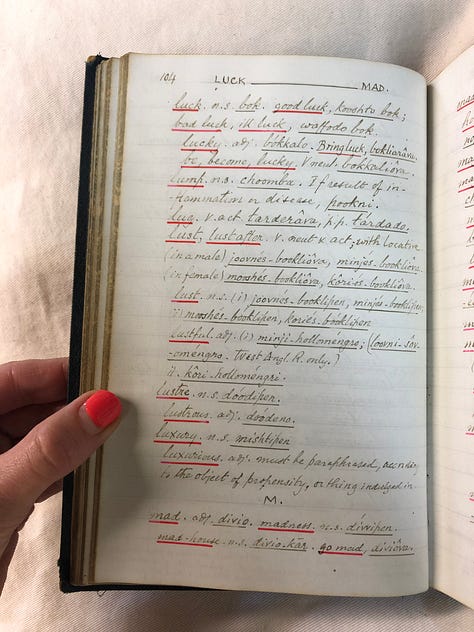 104 LUCK MAD.
luck. n.s. bok. good luck, kooshto bok;
bad luch, ill luck, waffodo bok.
lucky. adj. bókkalo. Bringluck, bokliarâva.
be, become, lucky. v. neut. bokkaliôva.
lump. n.s. choomba. If result of in-
flammation or disease, pookni.
lug. v. act. tarderâva, p.p. tárdado.
lust, lust after. v. neut & act; with locative
(in a male) joovnés-bookliôva, minjés-bookliôva
(in female) mooshés-bookliôva, kôriés-bookliôva.
lust. n.s. (i) joovnés-booklipen, minjés-booklipen,
ii) mooshés-booklipen, koriés-booklipen
lustful. adj. (i) minjì-hollomengro; (loovni-sov-
omengro. West Angl. R. only.)
ii. kôri-hollomengri.
lustre. n.s. doódipen.
lustrous. adj. doodeno.
luxury. n.s. mishtipen
luxurious. adj. must be paraphrased,
to the object of propensity, or thing indulged in.
M.
mad. adj. divio. madness. n.s. divvipen.
mad-house. n.s. divio-kár. go mad, diviôva.